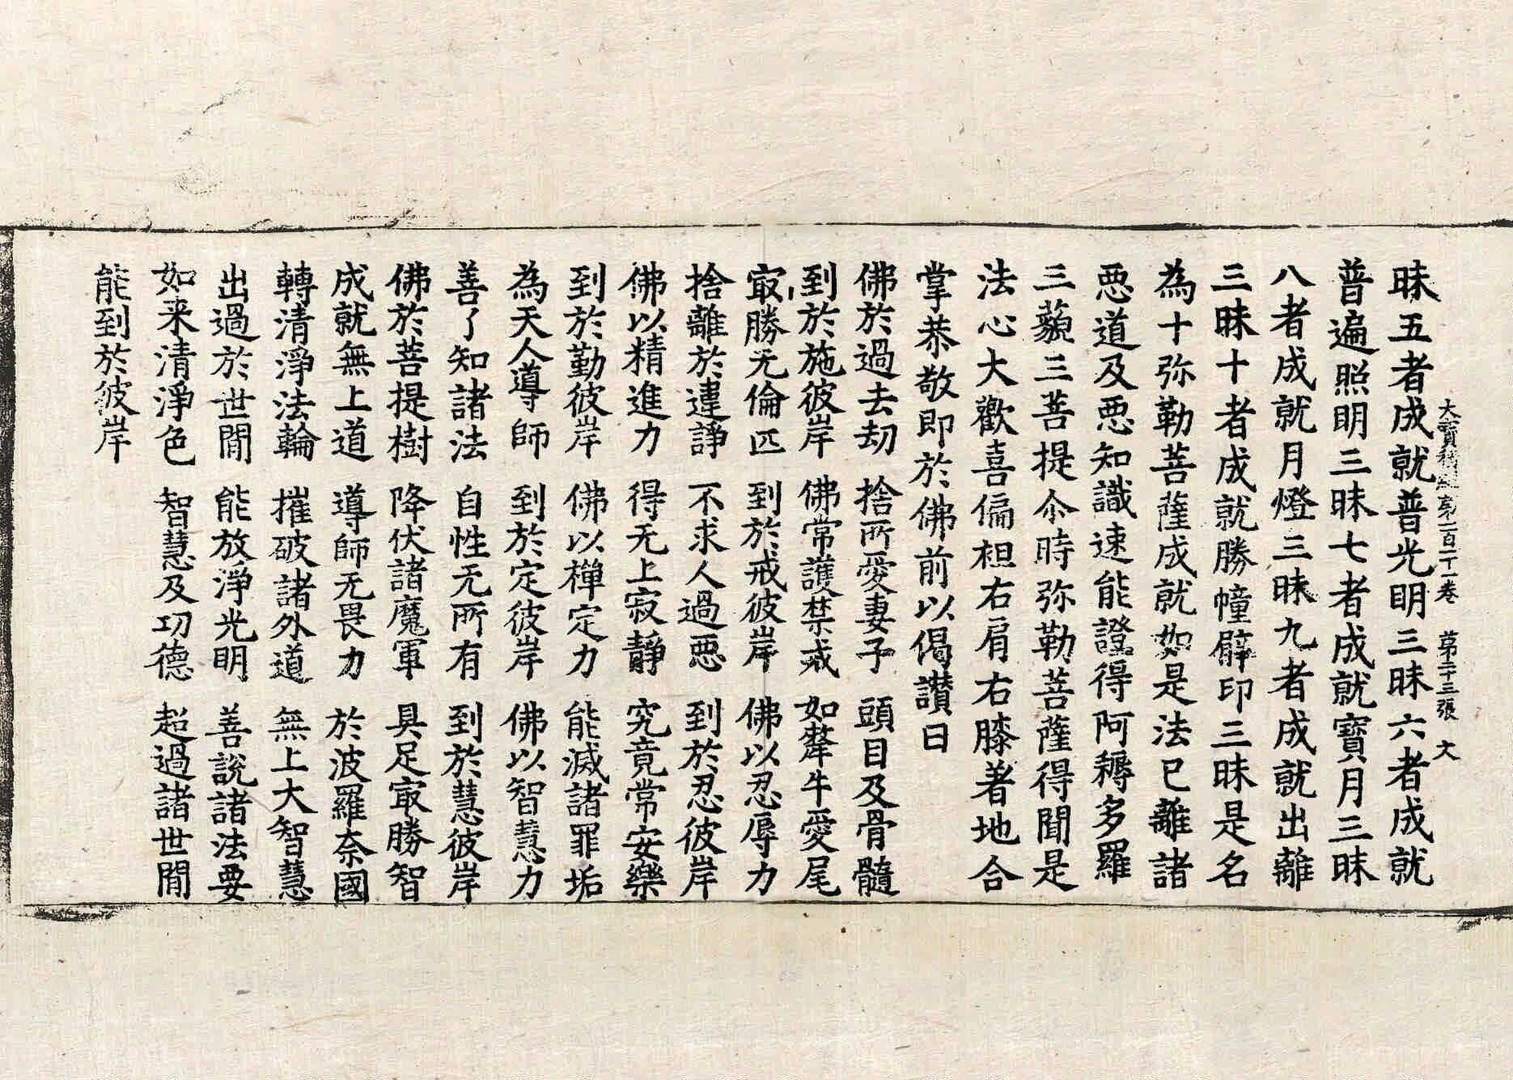 大寶積經第一百一十一卷 第二十三張 文
昧五者成就普光明三昧六者成就
普遍照明三昧七者成就寶月三昧
八者成就月燈三昧九者成就出離
三昧十者成就勝幢臂印三昧是名
為十弥勒菩薩成就如是法已離諸
惡道及惡知識速能證得阿耨多羅
三藐三菩提尒時弥勒菩薩得聞是
法心大歡喜偏袒右肩右膝著地合
掌恭敬即於佛前以偈讚曰
佛於過去劫 捨所愛妻子 頭目及骨髓
到於施彼岸 佛常護禁戒 如犛牛愛尾
冣勝无倫匹 到於戒彼岸 佛以忍辱力
捨離於違諍 不求人過惡 到於忍彼岸
佛以精進力 得无上寂靜 究竟常安樂
到於勤彼岸 佛以禪定力 能滅諸罪垢
為天人導師 到於定彼岸 佛以智慧力
善了知諸法 自性无所有 到於慧彼岸
佛於菩提樹 降伏諸魔軍 具足冣勝智
成就無上道 導師无畏力 於波羅奈國
轉清淨法輪 摧破諸外道 無上大智慧
出過於世間 能放淨光明 善說諸法要
如来清淨色 智慧及功德 超過諸世間
能到於彼岸